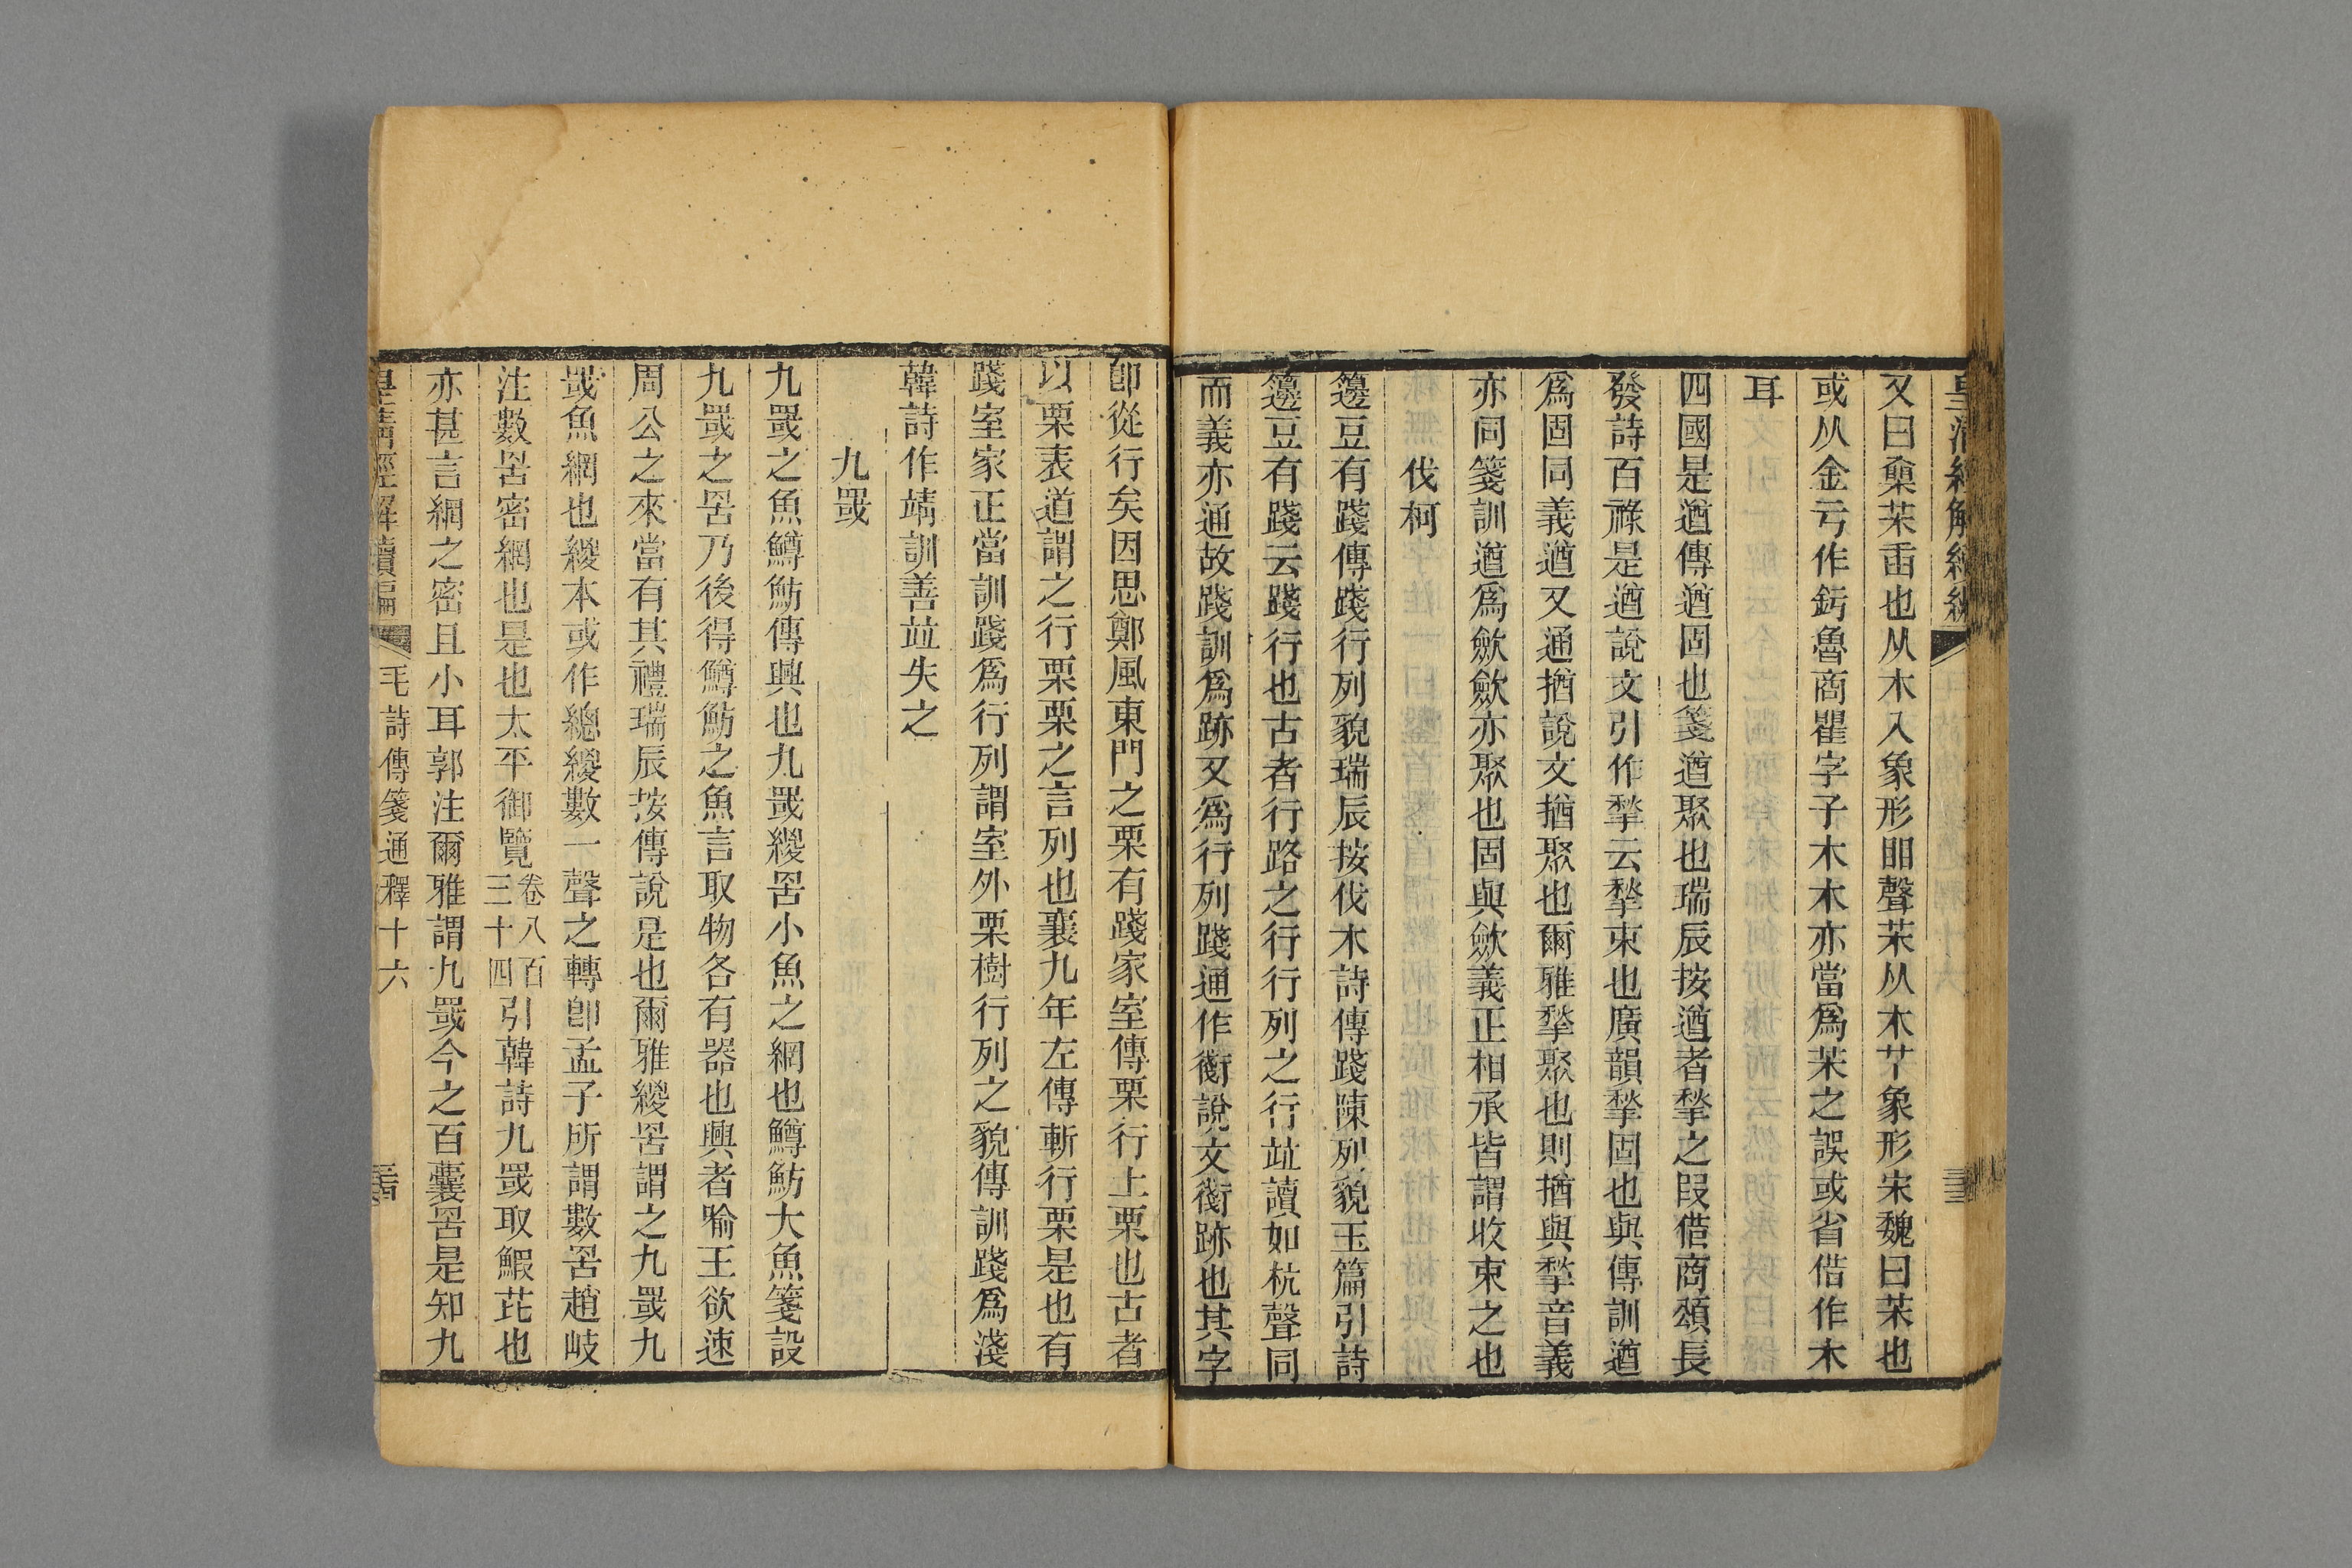 皇清經解續編
又曰䒷茉臿也从木入象形䀠聲茉从木𦫳象形宋魏曰茉也
或从金亏作釫魯商瞿字子木木亦當爲茉之誤或省借作木
耳
四國是遒傳遒固也箋遒聚也瑞辰按遒者揫之叚借商頌長
發詩百祿是遒說文引作揫云揫束也廣韻揫固也與傳訓遒
爲固同義遒又通揂說文揂聚也爾雅揫聚也則揂與揫音義
亦同箋訓遒爲歛歛亦聚也固與歛義正相承皆謂收束之也
伐柯
籩豆有踐傳踐行列貌瑞辰按伐木詩傳踐陳列貌玉篇引詩
籩豆有踐云踐行也古者行路之行行列之行竝讀如杭聲同
而義亦通故踐訓爲跡又爲行列踐通作衘說文衘跡也其字
卽從行矣因思鄭風東門之栗有踐家室傳栗行上栗也古者
以栗表道謂之行栗栗之言列也襄九年左傳斬行栗是也有
踐室家正當訓踐爲行列謂室外栗樹行列之貌傳訓踐爲淺
韓詩作靖訓善竝失之
九罭
九罭之魚鱒魴傳興也九罭緵罟小魚之網也鱒魴大魚箋設
九罭之罟乃後得鱒魴之魚言取物各有器也興者喻王欲速
周公之來當有其禮瑞辰按傳說是也爾雅緵罟謂之九罭九
罭魚網也緵本或作總緵數一聲之轉卽孟子所謂數罟趙岐
注數罟密網也是也太平御覽卷八百三十四引韓詩九罭取鰕芘也
亦甚言網之密且小耳郭注爾雅謂九罭今之百囊罟是知九
皇清經解續編 毛詩傳箋通釋十六